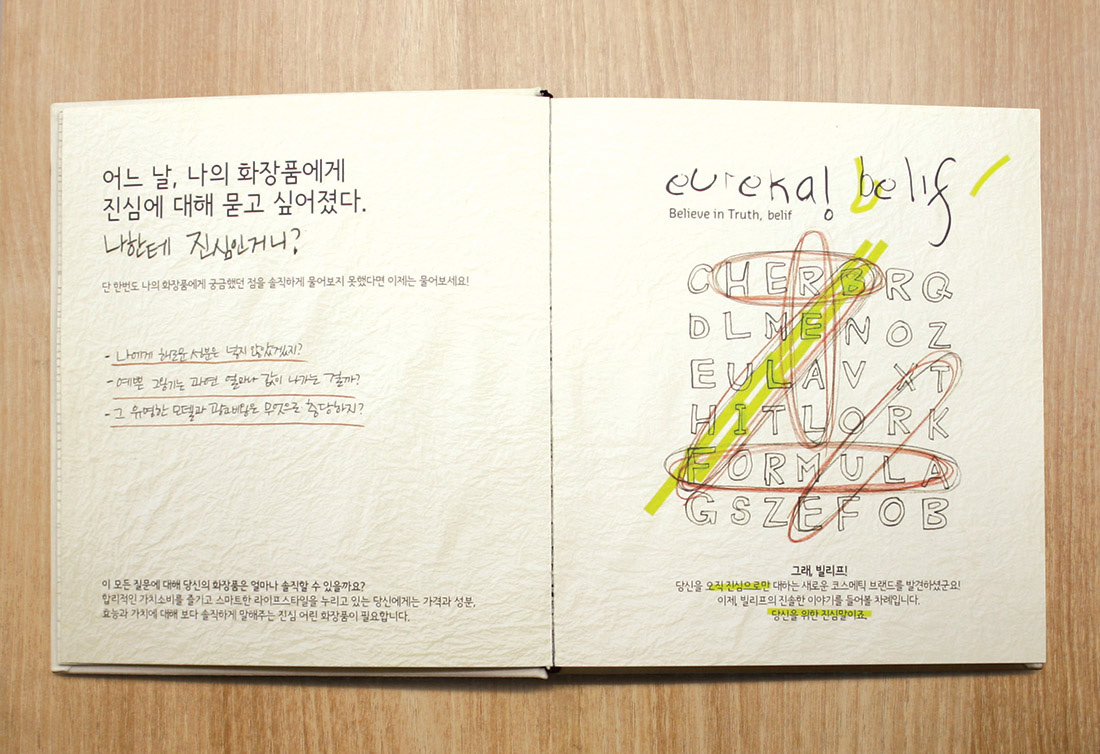 어느 날, 나의 화장품에게
진심에 대해 묻고 싶어졌다.
나한테 진심인거니?
단 한번도 나의 화장품에게 궁금했던 점을 솔직하게 물어보지 못했다면 이제는 물어보세요!
- 나에게 해로운 성분은 넣지 않았겠지?
- 예쁜 그릇가는 과연 얼마나 값이 나가는 걸까?
- 그 유명한 모델과 광고비용은 무엇으로 충당하지?
이 모든 질문에 대해 당신의 화장품은 얼마나 솔직할 수 있을까요?
합리적인 가치소비를 즐기고 스마트한 라이프 스타일을 누리고 있는 당신에게는 가격과 성분,
효능과 가치에 대해 보다 솔직하게 말해주는 진심 어린 화장품이 필요합니다.
eureka! belif
Believe in Truth, belif
CHERBRQ
DLMENOZ
EULAVXT
HITLORK
FORMULA
GSZEFOB
그래, 빌리프!
당신을 오직 진심으로만 대하는 새로운 코스메틱 브랜드를 발견하셨군요!
이제, 빌리프의 진솔한 이야기를 들어볼 차례입니다.
당신을 위한 진심말이죠.